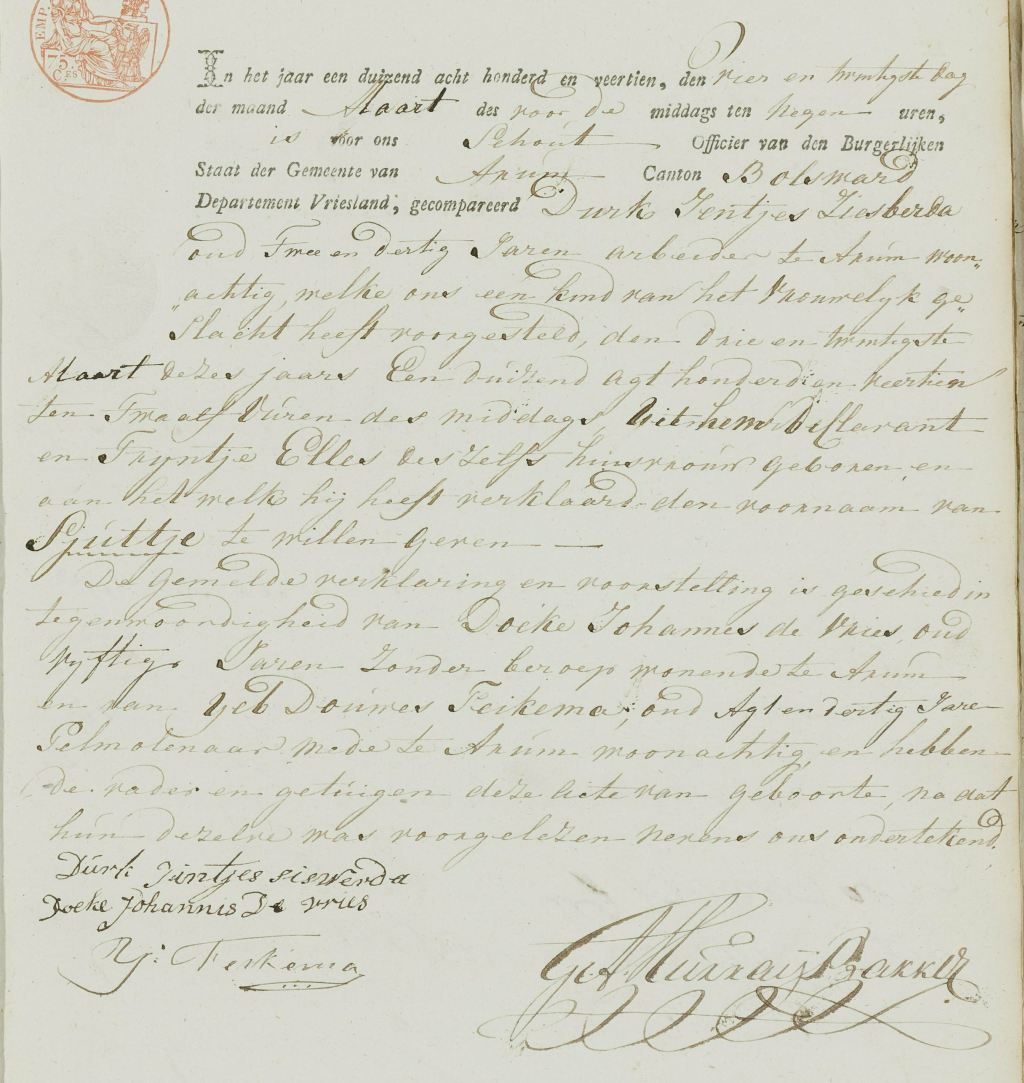 EMP.
75.
CES
In het jaar een duizend acht honderd en veertien, den vier en twintigste dag
der maand Maart des voor de middags ten Negen uren,
is voor ons Schout Officier van den Burgerlijken
Staat der Gemeente van Arúm Canton Bolsward
Departement Vriesland, gecompareerd Durk Jentjes Ziesberda
oud Twee en dertig Jaren arbeider te Arúm woon„
„achtig, welke ons een kind van het Vrouwelyk ge„
„slacht heeft voorgesteld, den drie en twintigste
Maart dezes jaars Een duizend agt honderd en veertien
ten Twaalf Vúren des middags, Uit hem Declarant
en Tryntje Elles des Zelfs huisvroúw geboren, en
aan het welk hij heeft verklaard den voornaam van
Sjúttje te willen geven
De gemelde verklaring en voorstelling is geschied in
tegenwoordigheid van Doeke Johannes de Vries, oud
vyftig Jaren Zonder beroep wonende te Arúm
en van Yeb Doúwes Feikema, oud Agt en dertig Jare
Pelmolenaar mede te Arúm woonachtig, en hebben
De vader en getúigen deze Acte van geboorte, na dat
hún dezelve was voorgelezen nevens ons ondertekend.
Dúrk Jintjes siswerda
Doeke Johannis De vries
Y: Feikema
Murray Bakker